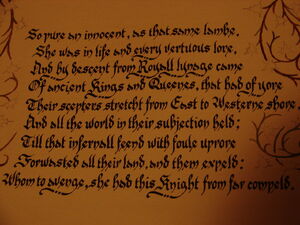 So pure an innocent, as that same lambe,
She was in life and every vertuous lore,
And by descent from Royall lynage came
Of ancient Kings and Queenes, that had of yore
Their scepters stretcht from East to Westerne shore,
And all the world in their subjection held;
Till that infernall feend with foule uprore
Forwasted all their land, and them expeld:
Whom to avenge, she had this Knight from far compeld.